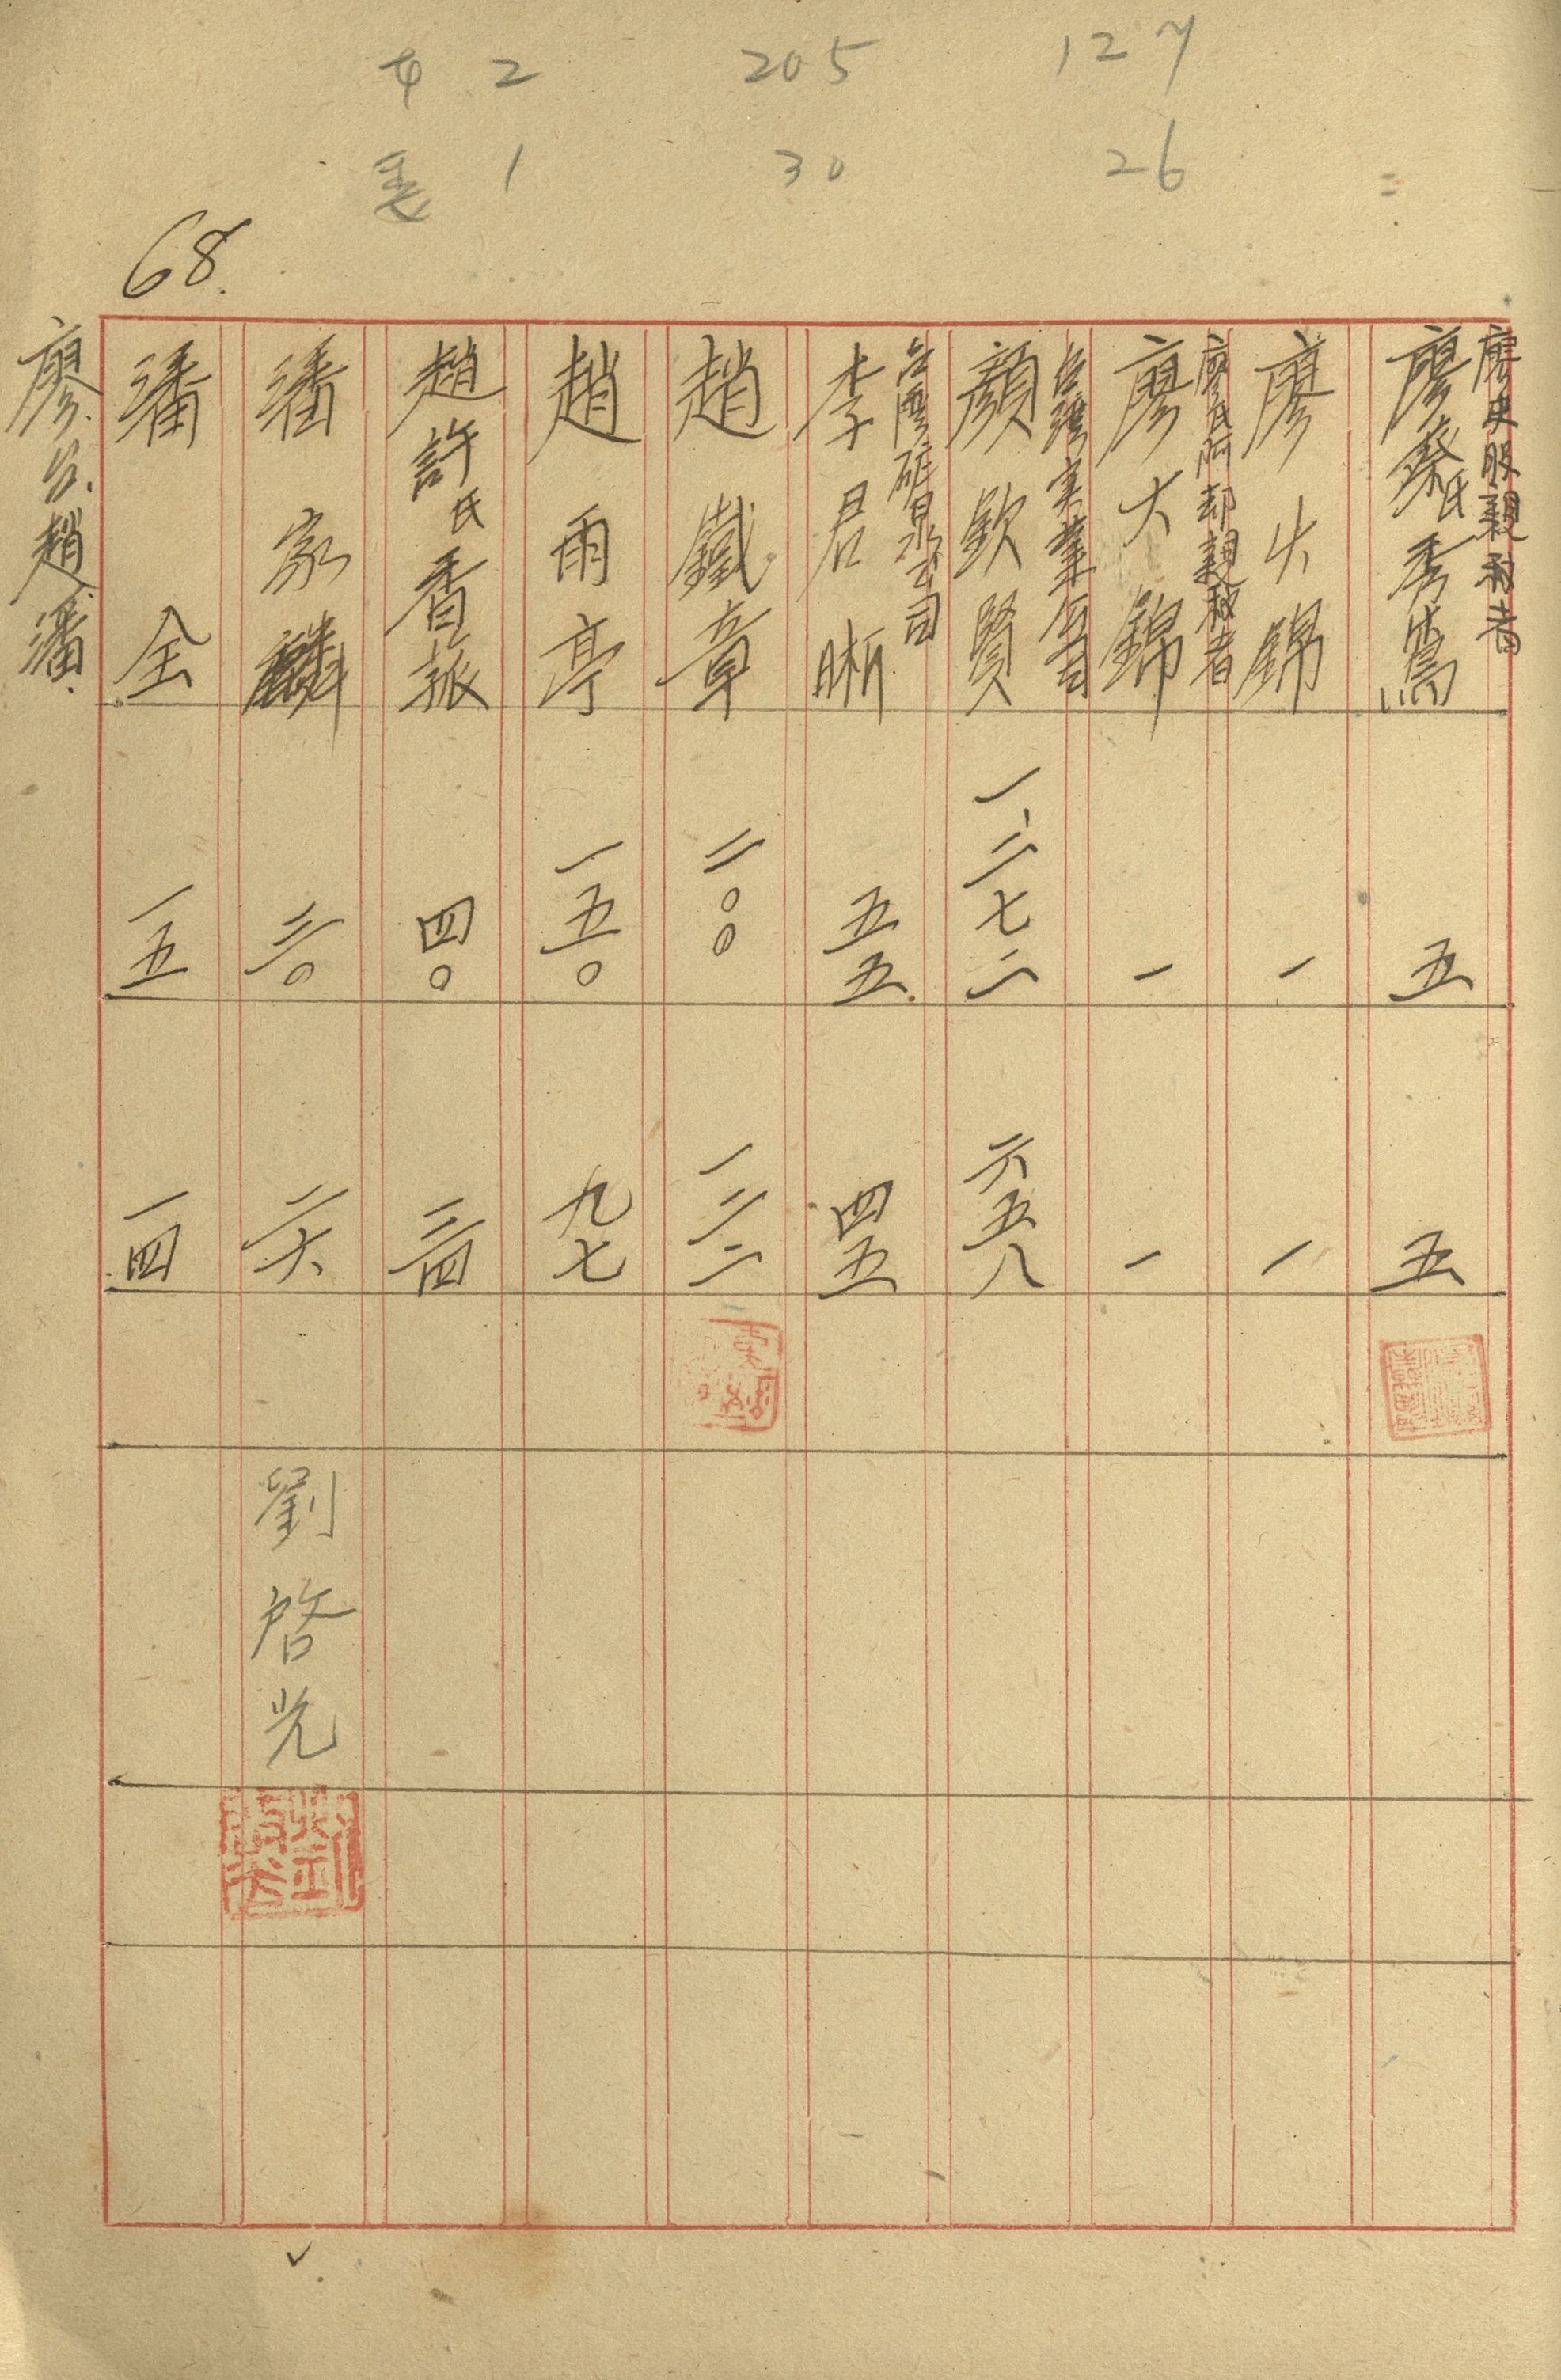 2 205 127
1 30 26
68.
廖史服親和者
廖蔡氏秀鶯
五
五
廖火錦
一
一
廖氏阿却親秘者
廖大錦
一
一
台陽实業公司
顏欽賢
一、二七二
六五八
台陽礦泉公司
李君晰
五五
四五
趙鐵章
二〇〇
一二二
趙雨亭
一五〇
九七
趙許氏香蓀
四〇
三四
潘家麟
三〇
二六
劉啓光
潘全
一五
一四
廖.公.趙.潘.